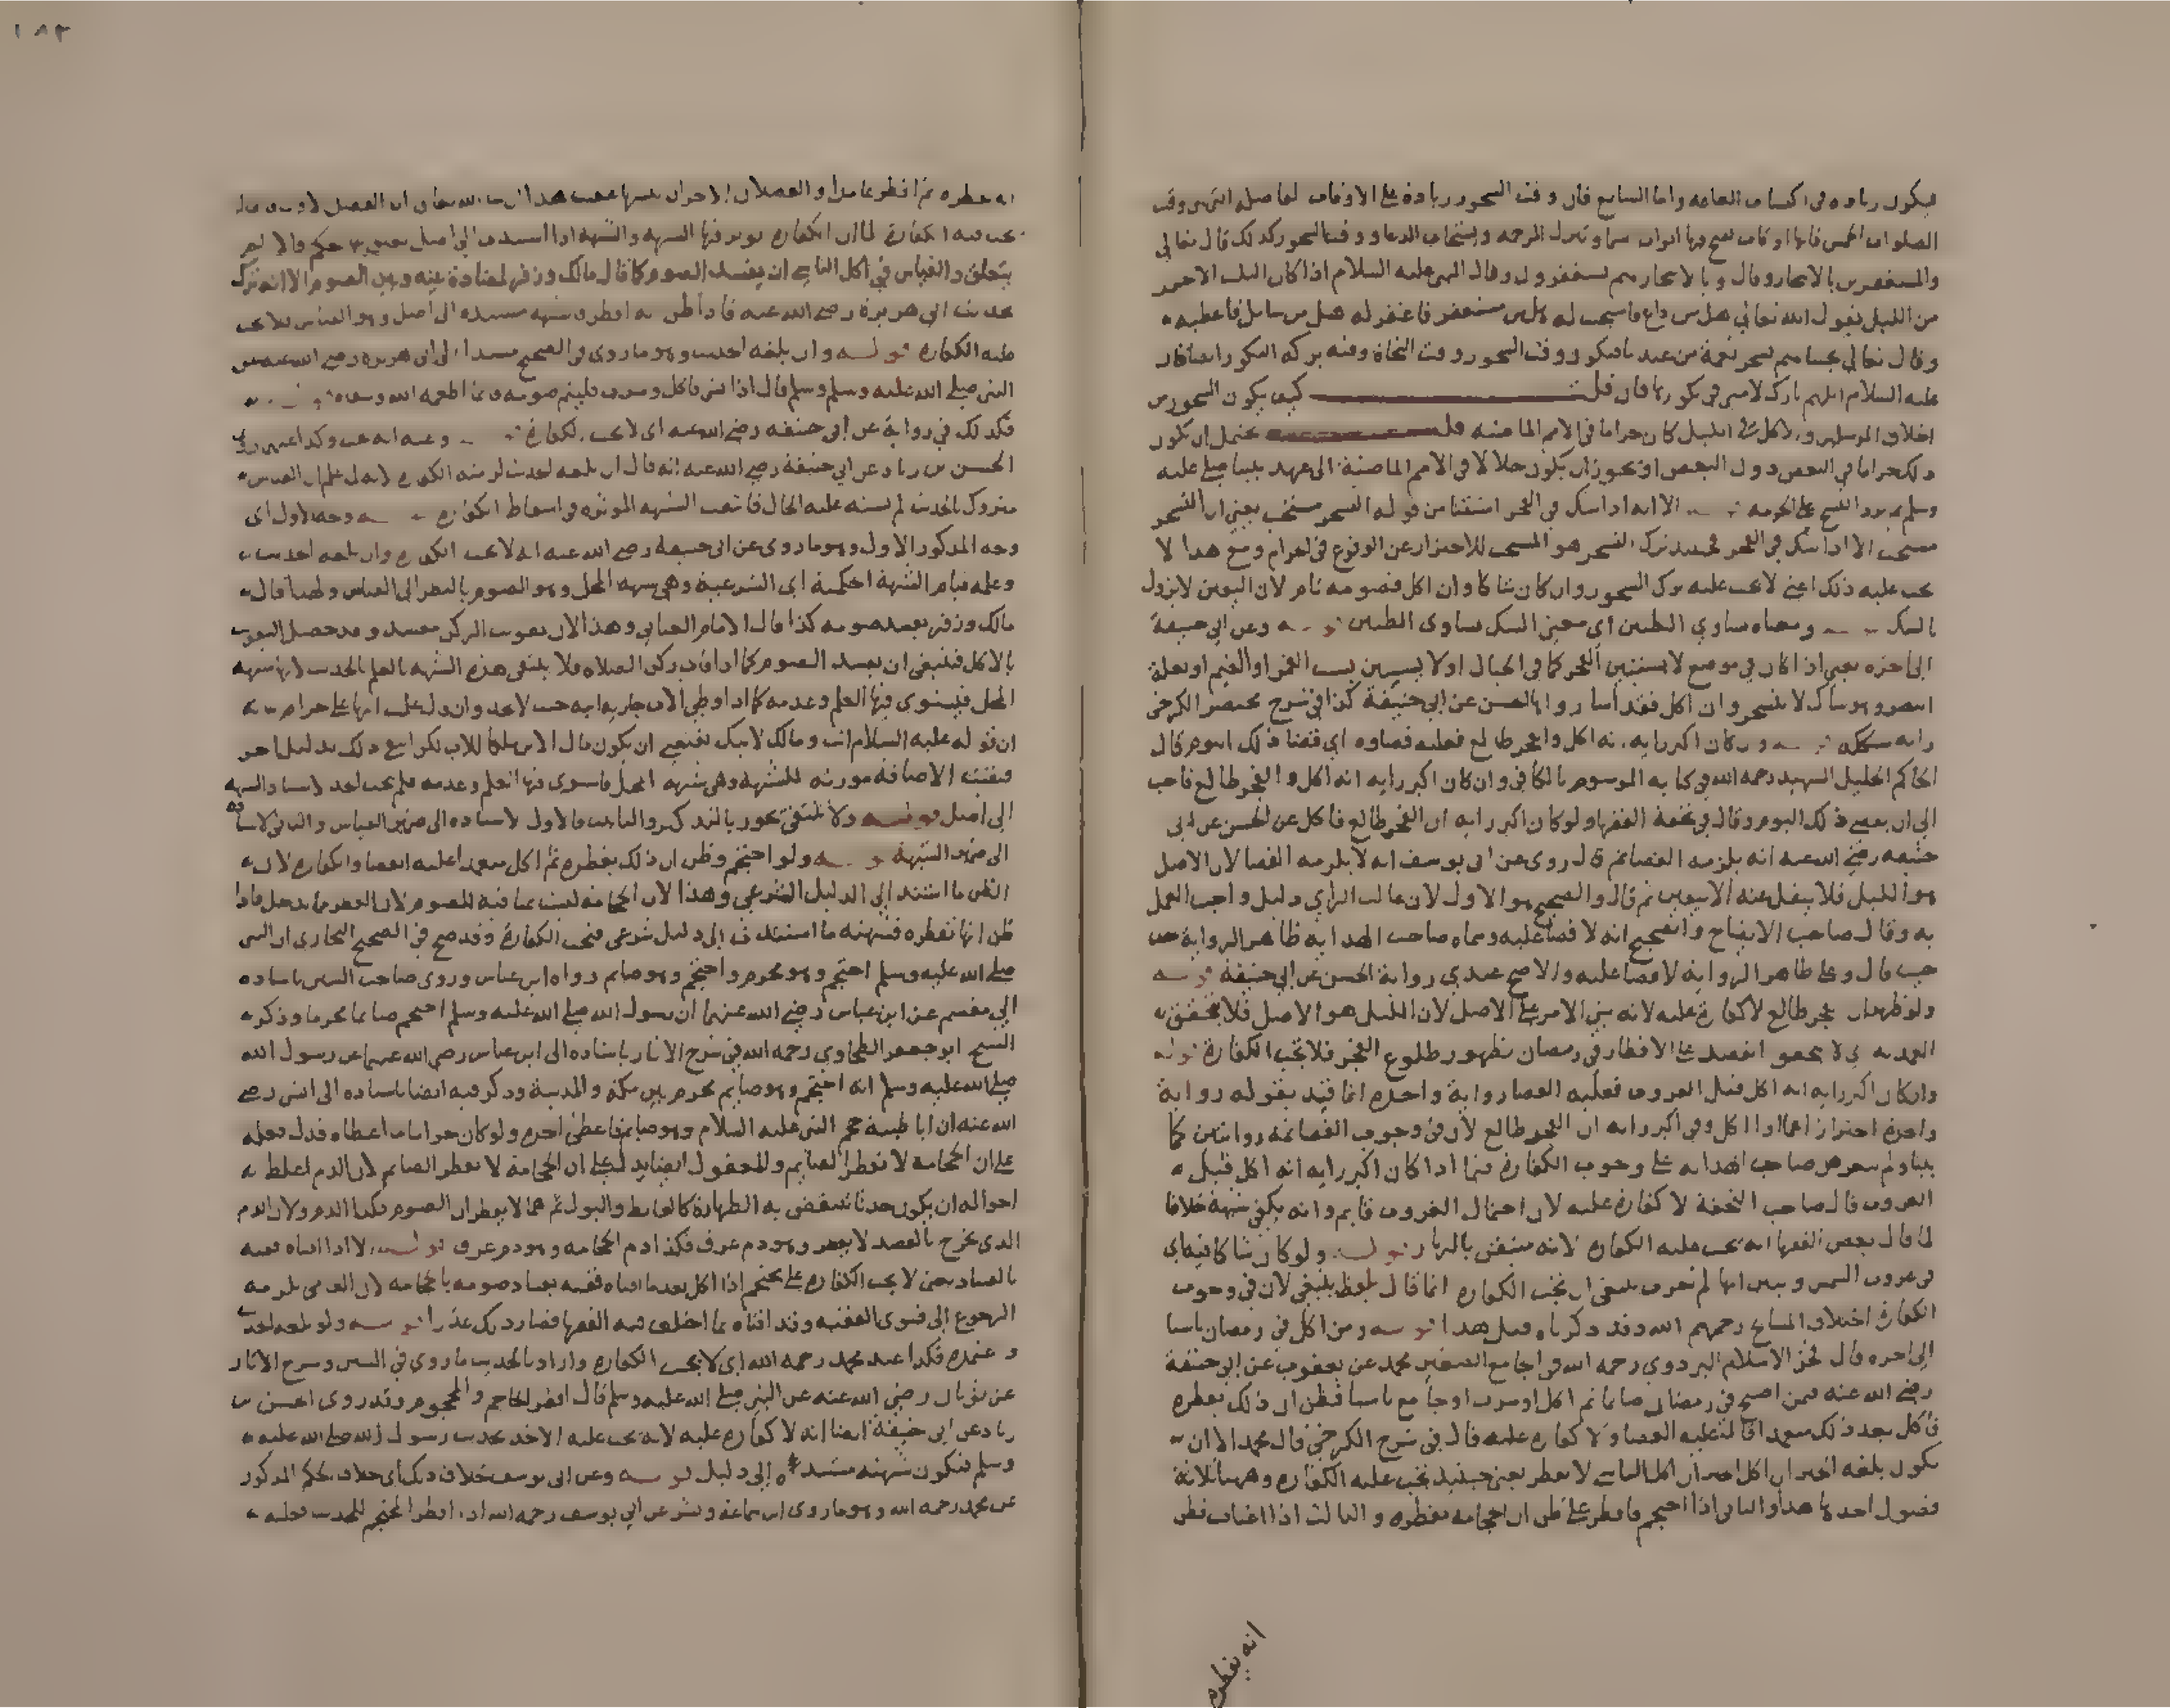 فيكون زيادة في العامه واما السابع فان وقت السحور زيادة على الاوقات لما صلى النبي وقت
الصلوات الخمس فانها اوقات تفتح فيها ابواب السما وتنزل الرحمه ويستجاب الدعا ووقت السحور كذلك قال تعالى
والمستغفرين بالاسحار وقال وبالاسحار هم يستغفرون وقال النبي عليه السلام اذا كان الثلث الاخير
من الليل يقول الله تعالى هل من داع فاستجيب له هل من مستغفر فاغفر له هل من سايل فاعطيه
وقال تعالى نجيناهم بسحر نعمة من عندنا فيكون وقت السحور وقت النجاة وفيه بركة البكور ايضا قال
عليه السلام اللهم بارك لامتي في بكورها فان قلت كيف يكون السحور من
اخلاق المرسلين والاكل في الليل كان حراما في الامم الماضيه قلت يحتمل ان يكون
ذلك حراما في البعض دون البعض او يجوز ان يكون حلالا في الامم الماضية الى عهد نبينا صلى الله عليه
وسلم الا انه اذا شك في الفجر استثنا من قوله السحر مستحب يعني ان التسحر
مستحب الا اذا شك في الفجر فحينئذ ترك التسحر هو المستحب للاحتراز عن الوقوع في الحرام ومع هذا لا
يجب عليه ذلك اعني لا يجب عليه ترك السحور وان كان شاكا وان اكل فصومه تام لان اليقين لا يزول
بالشك ومعناه تساوي الظنين اي معنى الشك تساوي الظنين قوله وعن ابي حنيفة
الى اخره يعني اذا كان في موضع لا يستبين الفجر كما في الجبال او لا يستبين بسبب القمر او الغيم او لعلة
البصر وهو شاك لا يتسحر وان اكل فقد اسا رواها الحسن عن ابي حنيفة كذا في شرح مختصر الكرخي
وان كان اكبر رايه انه اكل والفجر طالع فعليه قضاوه اي قضا ذلك اليوم قال
الحاكم الجليل الشهيد رحمه الله في كتابه الموسوم بالكافي وان كان اكبر رايه انه اكل والفجر طالع فاحب
الي ان يقضي ذلك اليوم وقال في تحفة الفقها ولو كان اكبر رايه ان الفجر طالع فاكل عن الحسن عن ابي
حنيفه رضي الله عنه انه يلزمه القضا ثم قال روي عن ابي يوسف انه لا يلزمه القضا لان الاصل
هو الليل فلا ينقل عنه الا بيقين ثم قال والصحيح هو الاول لان غالب الراي دليل واجب العمل
به وقال صاحب الايضاح والصحيح انه لا قضا عليه وسماه صاحب الهداية ظاهر الرواية
حيث قال وعلى ظاهر الرواية لا قضا عليه والاصح عندي رواية الحسن عن ابي حنيفة قوله
ولو ظهر ان الفجر طالع لا كفارة عليه لانه بنى الامر على الاصل لان الليل هو الاصل فلا يتحقق
العمديه اي لا يتحقق القصد على الافطار في رمضان بظهور طلوع الفجر فلا تجب الكفارة قوله
وان كان اكبر رايه انه اكل قبل الغروب فعليه القضا رواية واحدة انما قيد بقوله رواية
واحدة احترازا عما اذا اكل وفي اكبر رايه ان الفجر طالع لان في وجوب القضا ثمه روايتين كما
بينا ولم يتعرض صاحب الهدايه على وجوب الكفارة فيما اذا كان اكبر رايه انه اكل قبل
الغروب قال صاحب التحفة لا كفارة عليه لان احتمال الغروب قايم وانه يكفي شبهة خلافا
لما قال بعض الفقها انه تجب عليه الكفارة لانه متيقن بالنهار قوله ولو كان شاكا فيه اي
في غروب الشمس وتبين انها لم تغرب ينبغي ان تجب الكفاره انما قال بلفظ ينبغي لان في وجوب
الكفارة اختلاف المشايخ رحمهم الله وقد ذكرناه قبل هذا قوله ومن اكل في رمضان ناسيا
الى اخره قال فخر الاسلام البزدوي رحمه الله في الجامع الصغير محمد عن يعقوب عن ابي حنيفة
رضي الله عنه فيمن اصبح في رمضان صايما ثم اكل او شرب او جامع ناسيا فظن ان ذلك يفطره
فاكل بعد ذلك متعمدا قال عليه القضا ولا كفارة عليه قال في شرح الكرخي قال محمد الا ان
يكون بلغه الخبر ان اكل الناسي لا يفطر يعني حينئذ تجب عليه الكفاره وههنا ثلاثة
فصول احدها هذا والثاني اذا احتجم فافطر على ظن ان الحجامه تفطره والثالث اذا اغتاب فظن
انه يفطره
١٨٢
انه يفطره ثم افطر عامدا والفصلان الاخران
تجب فيه الكفارة لما ان الكفاره يوثر فيها الشبهه والشبهه اذا استندت الى اصل
يتعلق والقياس في اكل الناسي ان يفسد الصوم كما قال مالك وزفر لمضادة بينه وبين الصوم الا انه ترك
بحديث ابي هريرة رضي الله عنه فاذا ظن انه افطره فشبهه مستنده الى اصل وهو القياس فلا تجب
عليه الكفاره قوله وان بلغه الحديث وهو ما روي في الصحيح مسندا الى ابي هريره رضي الله عنه عن
النبي صلى الله عليه وسلم قال اذا نسي فاكل وشرب فليتم صومه فانما اطعمه الله وسقاه
فكذلك في رواية عن ابي حنيفه رضي الله عنه اي لا تجب الكفارة وعنه انه تجب وكذا عنهما روى
الحسن بن زياد عن ابي حنيفة رضي الله عنه انه قال ان بلغه الحديث لزمته الكفاره لانه لما علم ان القياس
متروك بالحديث لم يشتبه عليه الحال فانتفت الشبهه الموثره في اسقاط الكفاره وجه الاول اي
وجه المذكور الاول وهو ما روي عن ابي حنيفة رضي الله عنه انه لا تجب الكفاره وان بلغه الحديث
وعلمه قيام الشبهة الحكمية اي الشرعية وهي شبهه المحل وهو الصوم بالنظر الى القياس ولهذا قال
مالك وزفر يفسد صومه كذا قال الامام العتابي وهذا لان بفوت الركن يفسد وقد حصل الفوت
بالاكل فينبغي ان يفسد الصوم كما اذا فات ركن الصلاه فلا ينتفي هذه الشبهه بالعلم بالحديث لانها شبهه
المحل فيستوي فيها العلم وعدمه كما اذا وطي الاب جارية ابنه حيث لا يحد وان علم انها على حرام
لان قوله عليه السلام انت ومالك لابيك يقتضي ان يكون مال الابن ملكا للاب لكن امتنع ذلك بدليل اخر
فبقيت الاضافة مورثه للشبهة وهي شبهه المحل فاستوى فيها العلم وعدمه فلم يجب الحد
الى اصل قوله ولا تنتفي يجوز بالتذكير والتانيث فالاول لاسناده الى ضمير القياس والثاني لاسناده
الى ضمير الشبهة قوله ولو احتجم وظن ان ذلك يفطره ثم اكل متعمدا عليه القضا والكفاره لان
الظن ما استند الى الدليل الشرعي وهذا لان الحجامة ليست بمنافية للصوم لان الفطر مما يدخل فاذا
ظن انها تفطره فشبهته ما استندت الى دليل شرعي فتجب الكفارة وقد صح في الصحيح البخاري ان النبي
صلى الله عليه وسلم احتجم وهو محرم واحتجم وهو صايم رواه ابن عباس وروى صاحب السنن باسناده
الى مقسم عن ابن عباس رضي الله عنهما ان رسول الله صلى الله عليه وسلم احتجم صايما محرما وذكر
الشيخ ابو جعفر الطحاوي رحمه الله في شرح الاثار باسناده الى ابن عباس رضي الله عنهما عن رسول الله
صلى الله عليه وسلم انه احتجم وهو صايم محرم بين مكة والمدينة وذكر فيه ايضا باسناده الى انس رضي
الله عنه ان ابا طيبة حجم النبي عليه السلام وهو صايم فاعطى اجره ولو كان حراما ما اعطاه فدل فعله
على ان الحجامة لا تفطر الصايم والمعقول ايضا يدل على ان الحجامة لا تفطر الصايم لان الدم اغلظ
احواله ان يكون حدثا تنتقض به الطهارة كالغايط والبول ثم هما لا يفطران الصوم فكذا الدم ولان الدم
الذي يخرج بالفصد لا يفطر وهو دم عرق فكذا دم الحجامه وهو دم عرق قوله الا اذا افتاه فقيه
بالفساد يعني لا تجب الكفاره على محتجم اذا اكل بعدما افتاه فقيه بفساد صومه بالحجامه لان العامي يلزمه
الرجوع الى فتوى الفقيه وقد افتاه بما اختلف فيه الفقها فصار ذلك عذرا قوله ولو بلغه الحديث
واعتمده فكذا عند محمد رحمه الله اي لا تجب الكفاره واراد بالحديث ما روي في السنن وشرح الاثار
عن ثوبان رضي الله عنه عن النبي صلى الله عليه وسلم قال افطر الحاجم والمحجوم وقد روى الحسن بن
زياد عن ابي حنيفة ايضا انه لا كفاره عليه لانه يجب عليه الاخذ بحديث رسول الله صلى الله عليه
وسلم فتكون شبهته مستندة الى دليل قوله وعن ابي يوسف خلاف ذلك اي خلاف الحكم المذكور
عن محمد رحمه الله وهو ما روى ابن سماعة وبشر عن ابي يوسف رحمه الله اذا افطر المحتجم للحديث فعليه